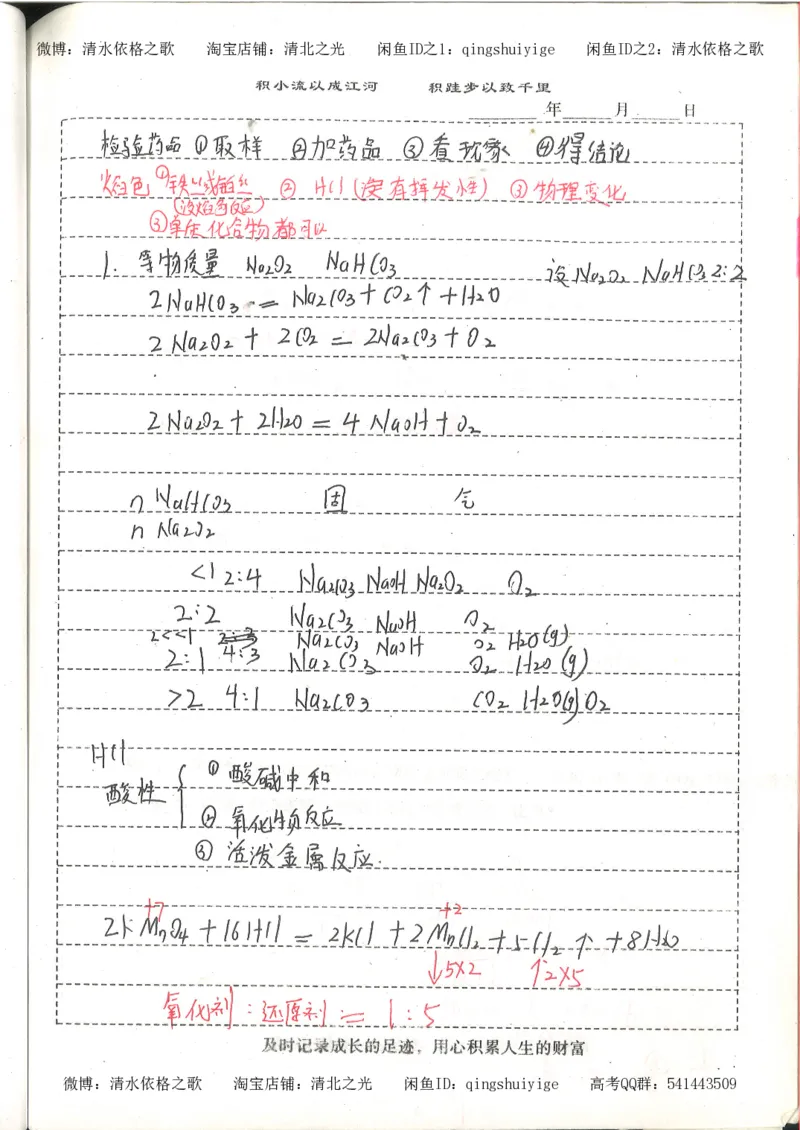 微博：清水依格之歌 淘宝店铺：清北之光 闲鱼ID之1：qingshuiyige 闲鱼ID之2：清水依格之歌
积小流以成江河 积跬步以致千里
年 月 日
检验药品 ①取样 ②加药品 ③看现象 ④得结论
焰色 ①铁丝或铂丝 ② HCl (没有挥发性) ③ 物理变化
(没焰色反应)
③单质化合物都可以
1. 等物质量 Na2O2 NaHCO3 设Na2O2 NaHCO3 2:2
2NaHCO3 = Na2CO3 + CO2↑ + H2O
2Na2O2 + 2CO2 = 2Na2CO3 + O2
2Na2O2 + 2H2O = 4NaOH + O2
n NaHCO3 固 气
n Na2O2
<1 2:4 Na2CO3 NaOH Na2O2 O2
2:2 Na2CO3 NaOH O2
2<<1 4:3 Na2CO3 NaOH O2 H2O(g)
2:1 Na2CO3 O2 H2O(g)
>2 4:1 Na2CO3 CO2 H2O(g) O2
HCl
酸性 { ① 酸碱中和
② 氧化物反应
③ 活泼金属反应.
+7 +2
2KMnO4 + 16HCl = 2KCl + 2MnCl2 + 5Cl2↑ + 8H2O
↓5×2 ↑2×5
氧化剂:还原剂 = 1:5
及时记录成长的足迹，用心积累人生的财富
微博：清水依格之歌 淘宝店铺：清北之光 闲鱼ID：qingshuiyige 高考QQ群：541443509